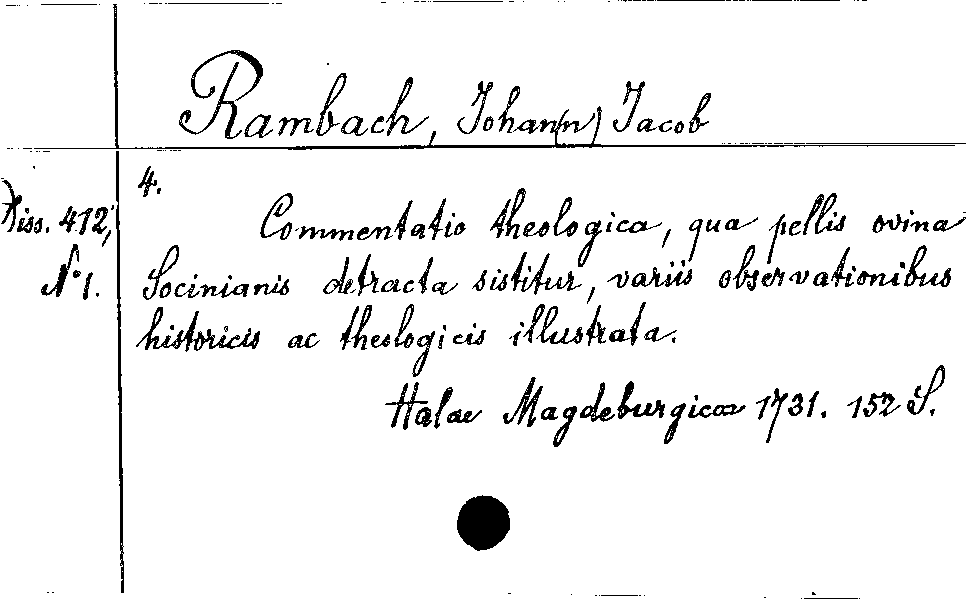 Rambach, Johan(n) Jacob
4.
Diss. 412,
N° 1.
Commentatio theologica, qua pellis ovina
Socinianis detracta sistitur, variis observationibus
historicis ac theologicis illustrata.
Halae Magdeburgicae 1731. 152 S.